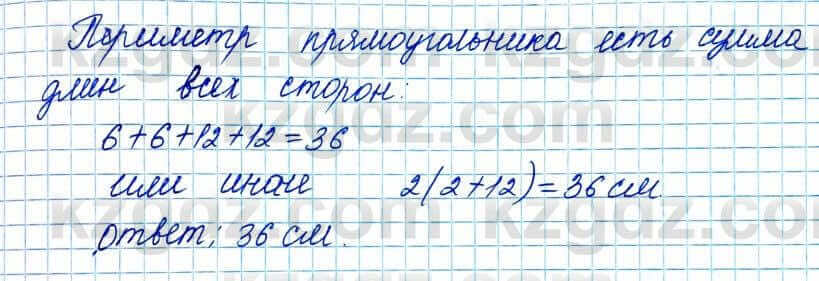 Периметр прямоугольника есть сумма
длин всех сторон:
6+6+12+12=36
или иначе 2(2+12)=36 см.
Ответ: 36 см.
kzgdz.com